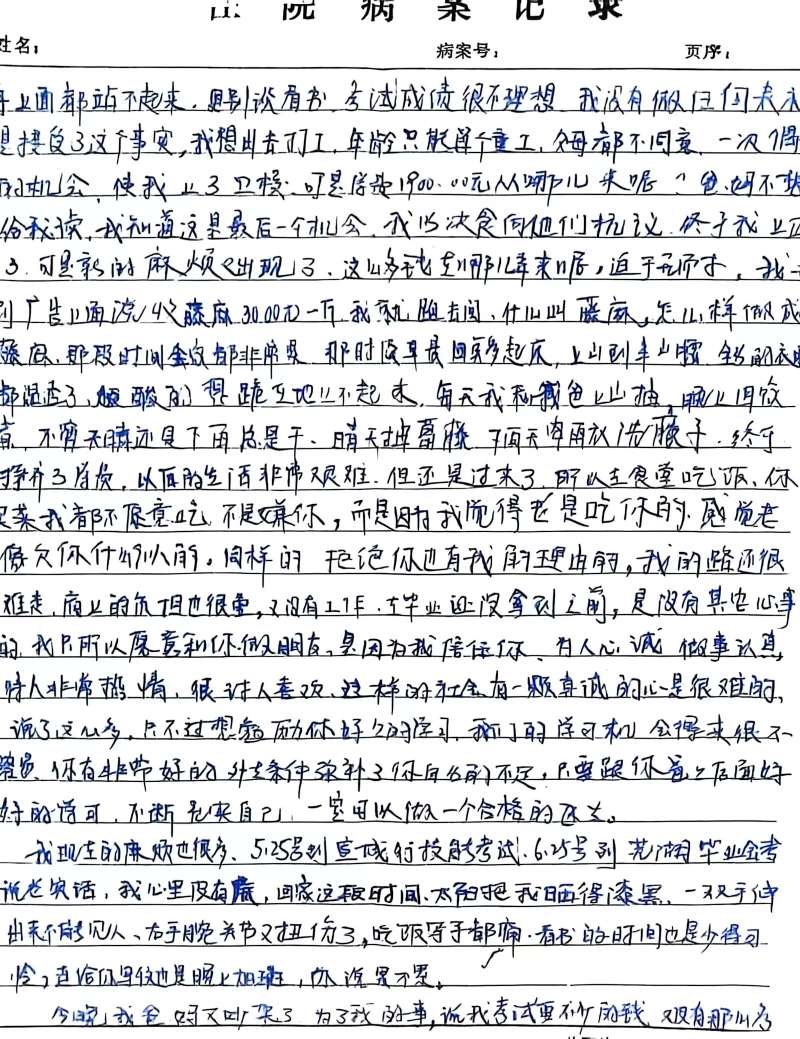 医院病案记录
姓名： 病案号： 页序：
上面都站不起来，更别谈看书，考试成绩很不理想，我没有做任何表示
是接受了这个事实，我想出去打工，年龄只能算个童工，父母都不同意，一次偶
的机会，使我上了卫校，可是学费1900.00元从哪儿来呢？爸妈不
给我读，我知道这是最后一个机会，我以决食向他们抗议，终于我上
了，可是新的麻烦又出现了，这么多钱去哪儿弄来呢，迫于无奈，我
到广告上面说 藤麻30.00元一斤，我就跑去问，什么叫藤麻，怎么样做成
藤麻，那段时间全家都非常累，那时候早晨四点多起床，上山到半山腰，全身的衣服
都湿透了，腿酸的 跪在地上不起来，每天我和爸爸上山抽，晚上回家
煮，不管天晴还是下雨总是干，晴天 葛藤，下雨天 雨水洗藤子，终于
挣齐了学费，以后的生活非常艰难，但还是过来了，所以去食堂吃饭，你
买菜我都不愿意吃，不是嫌你，而是因为我觉得老是吃你的，感觉老
像欠你什么似的。同样的拒绝你也有我的理由的，我的路还很
难走，肩上的负担也很重，又没有工作，在毕业证没拿到之前，是没有其它心事
的，我只所以愿意和你做朋友，是因为我信任你，为人心诚，做事认真，
待人非常热情，很讨人喜欢，这样的社会有一颗真诚的心是很难的，
说了这么多，只不过想勉励你好好的学习，我们的学习机会得来很不
容易，你有非常好的外在条件弥补了你自己的不足，只要跟你爸爸后面好
好的学习，不断充实自己，一定可以做一个合格的医生。
我现在的麻烦也很多，5.25号到宣城行技能考试，6.25号到芜湖毕业会考
说老实话，我心里没有底，回家这段时间，太阳把我晒得漆黑，一双手伸
出来不能见人，右手腕关节又扭伤了，吃饭等于都痛，看书的时间也是少得可
怜，连给你写信也是晚上加班，你说累不累。
今晚我爸妈又吵架了，为了我的事，说我考试要不少的钱，又没有那么多